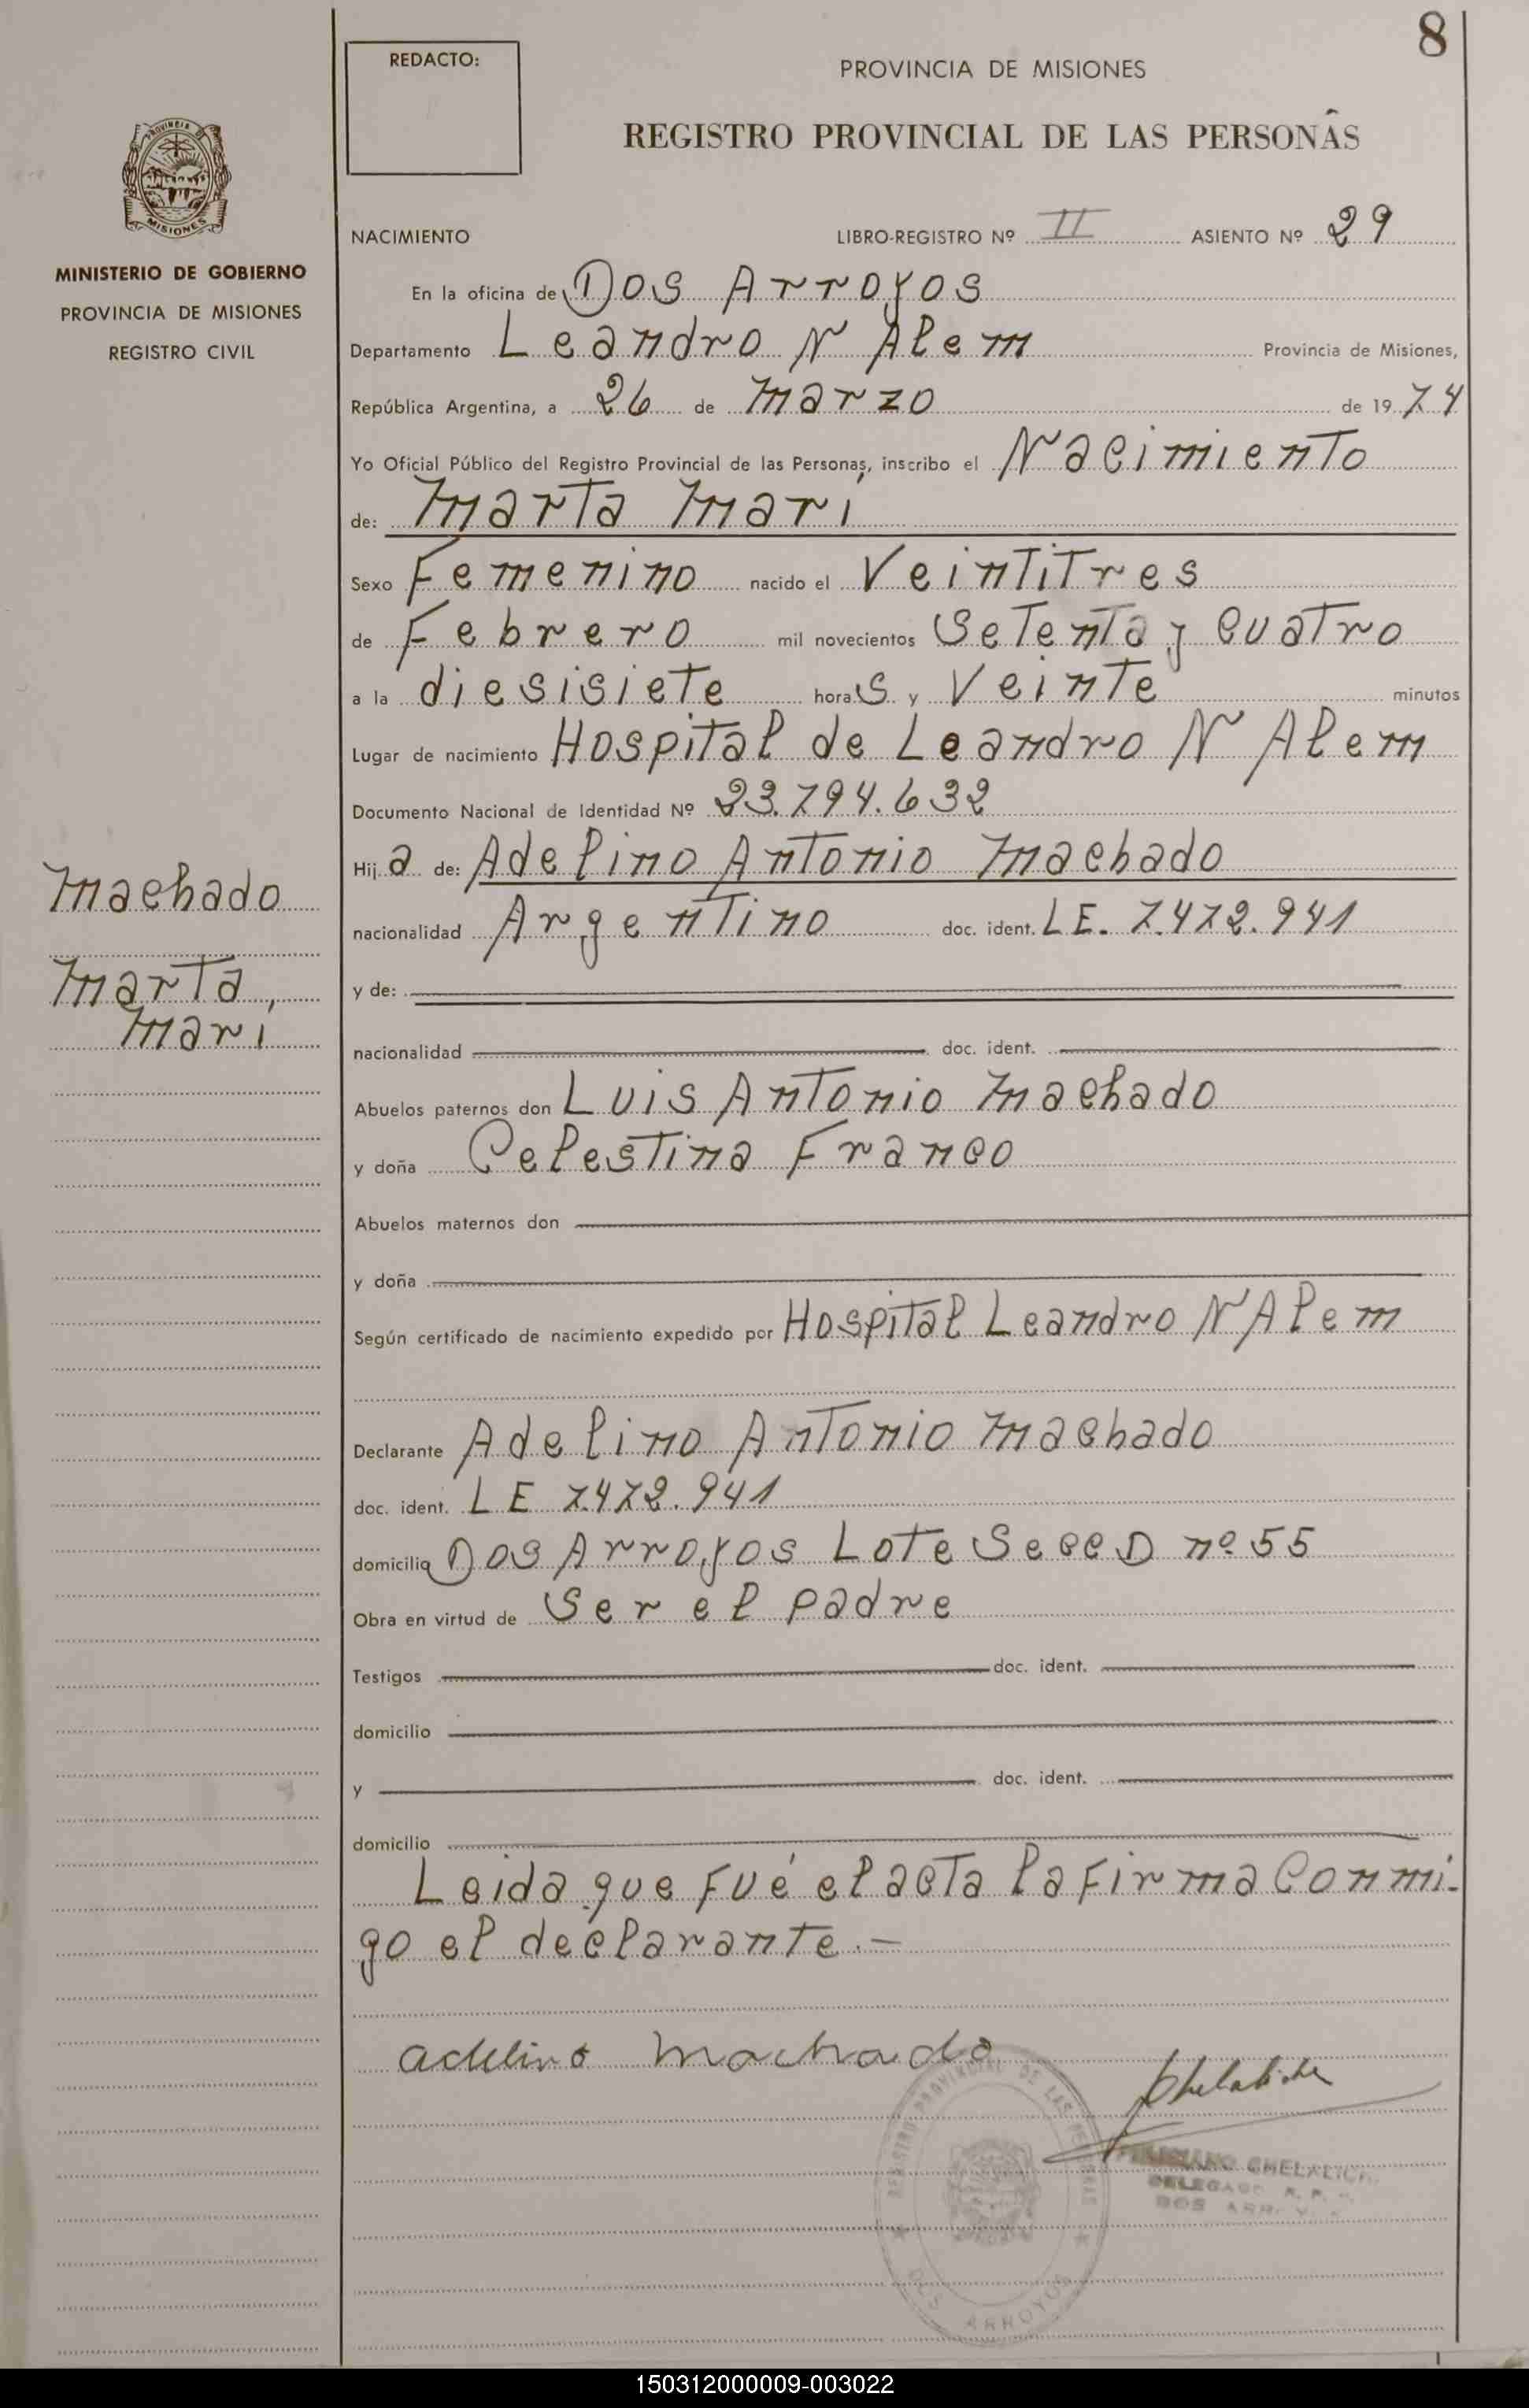 8
REDACTO:
PROVINCIA DE MISIONES
REGISTRO PROVINCIAL DE LAS PERSONAS
PROVINCIA DE MISIONES
MINISTERIO DE GOBIERNO
PROVINCIA DE MISIONES
REGISTRO CIVIL
NACIMIENTO LIBRO-REGISTRO Nº II ASIENTO Nº 29
En la oficina de Dos Arroyos
Departamento Leandro N Alem Provincia de Misiones,
República Argentina, a 26 de Marzo de 1974
Yo Oficial Público del Registro Provincial de las Personas, inscribo el Nacimiento
de: Marta Mari
Sexo Femenino nacido el Veintitres
de Febrero mil novecientos Setenta y Cuatro
a la diesisiete horas y Veinte minutos
Lugar de nacimiento Hospital de Leandro N Alem
Documento Nacional de Identidad Nº 23.794.632
Hija de: Adelino Antonio Machado
nacionalidad Argentino doc. ident. LE. 7.472.941
y de:
nacionalidad doc. ident.
Abuelos paternos don Luis Antonio Machado
y doña Celestina Franco
Abuelos maternos don
y doña
Según certificado de nacimiento expedido por Hospital Leandro N Alem
Declarante Adelino Antonio Machado
doc. ident. LE 7.472.941
domicilio Dos Arroyos Lote Secc D nº 55
Obra en virtud de Ser el padre
Testigos doc. ident.
domicilio
y doc. ident.
domicilio
Leida que fué el acta la firma Conmi-
go el declarante.-
Machado
Marta,
Mari
adelino machado
REGISTRO PROVINCIAL DE LAS PERSONAS
DOS ARROYOS
CHELALICH
DELEGADO R. P.
DOS ARROYOS
150312000009-003022